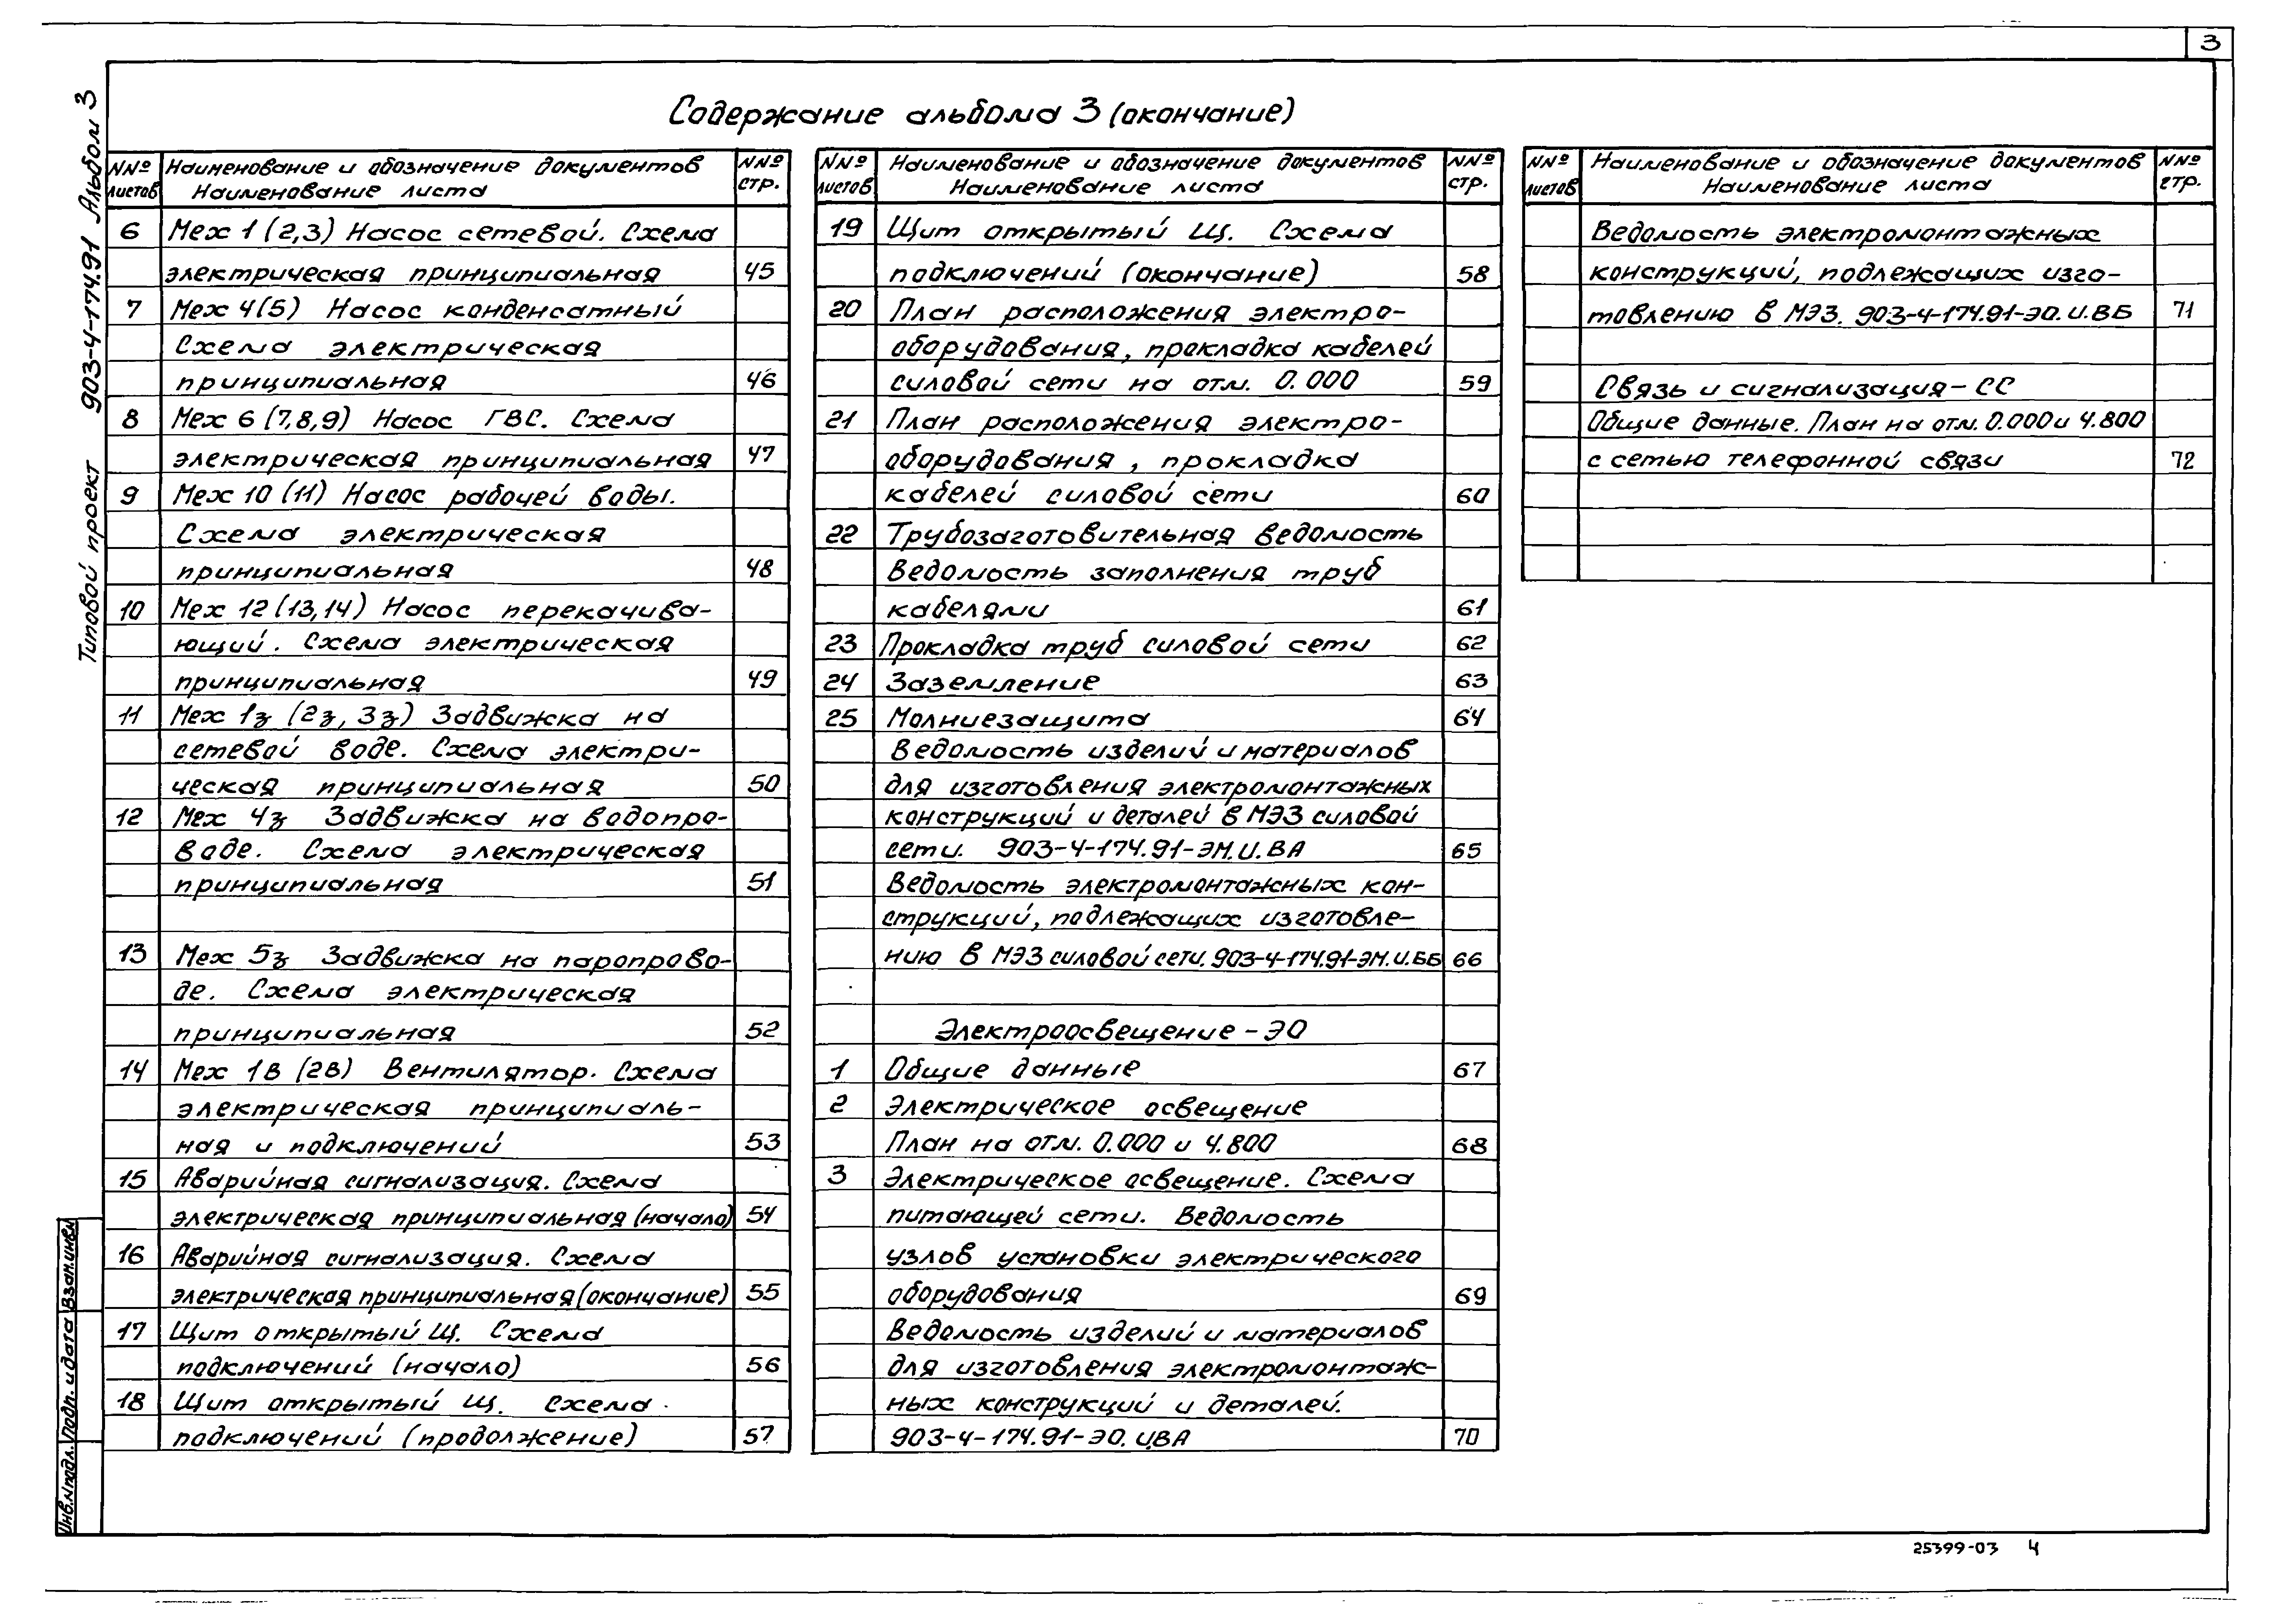 3
Содержание альбома 3 (окончание)
Типовой проект 903-4-174.91 Альбом 3
NNº листов
Наименование и обозначение документов
Наименование листа
NNº стр.
6 Мех 1 (2,3) Насос сетевой. Схема
электрическая принципиальная 45
7 Мех 4(5) Насос конденсатный
Схема электрическая
принципиальная 46
8 Мех 6 (7,8,9) Насос ГВС. Схема
электрическая принципиальная 47
9 Мех 10 (11) Насос рабочей воды.
Схема электрическая
принципиальная 48
10 Мех 12 (13,14) Насос перекачива-
ющий. Схема электрическая
принципиальная 49
11 Мех 1з (2з, 3з) Задвижка на
сетевой воде. Схема электри-
ческая принципиальная 50
12 Мех 4з Задвижка на водопро-
воде. Схема электрическая
принципиальная 51
13 Мех 5з Задвижка на паропрово-
де. Схема электрическая
принципиальная 52
14 Мех 1В (2В) Вентилятор. Схема
электрическая принципиаль-
ная и подключений 53
15 Аварийная сигнализация. Схема
электрическая принципиальная (начало) 54
16 Аварийная сигнализация. Схема
электрическая принципиальная (окончание) 55
17 Щит открытый Щ. Схема
подключений (начало) 56
18 Щит открытый Щ. Схема
подключений (продолжение) 57
NNº листов
Наименование и обозначение документов
Наименование листа
NNº стр.
19 Щит открытый Щ. Схема
подключений (окончание) 58
20 План расположения электро-
оборудования, прокладка кабелей
силовой сети на отм. 0.000 59
21 План расположения электро-
оборудования, прокладка
кабелей силовой сети 60
22 Трубозаготовительная ведомость
Ведомость заполнения труб
кабелями 61
23 Прокладка труб силовой сети 62
24 Заземление 63
25 Молниезащита 64
Ведомость изделий и материалов
для изготовления электромонтажных
конструкций и деталей в МЭЗ силовой
сети. 903-4-174.91-ЭМ.И.ВА 65
Ведомость электромонтажных кон-
струкций, подлежащих изготовле-
нию в МЭЗ силовой сети. 903-4-174.91-ЭМ.И.ББ 66
Электроосвещение - ЭО
1 Общие данные 67
2 Электрическое освещение
План на отм. 0.000 и 4.800 68
3 Электрическое освещение. Схема
питающей сети. Ведомость
узлов установки электрического
оборудования 69
Ведомость изделий и материалов
для изготовления электромонтаж-
ных конструкций и деталей.
903-4-174.91-ЭО.И.ВА 70
NNº листов
Наименование и обозначение документов
Наименование листа
NNº стр.
Ведомость электромонтажных
конструкций, подлежащих изго-
товлению в МЭЗ. 903-4-174.91-ЭО.И.ВБ 71
Связь и сигнализация - СС
Общие данные. План на отм. 0.000 и 4.800
с сетью телефонной связи 72
Инв.Nподл. Подп. и дата Взам.инвN
25399-03 4